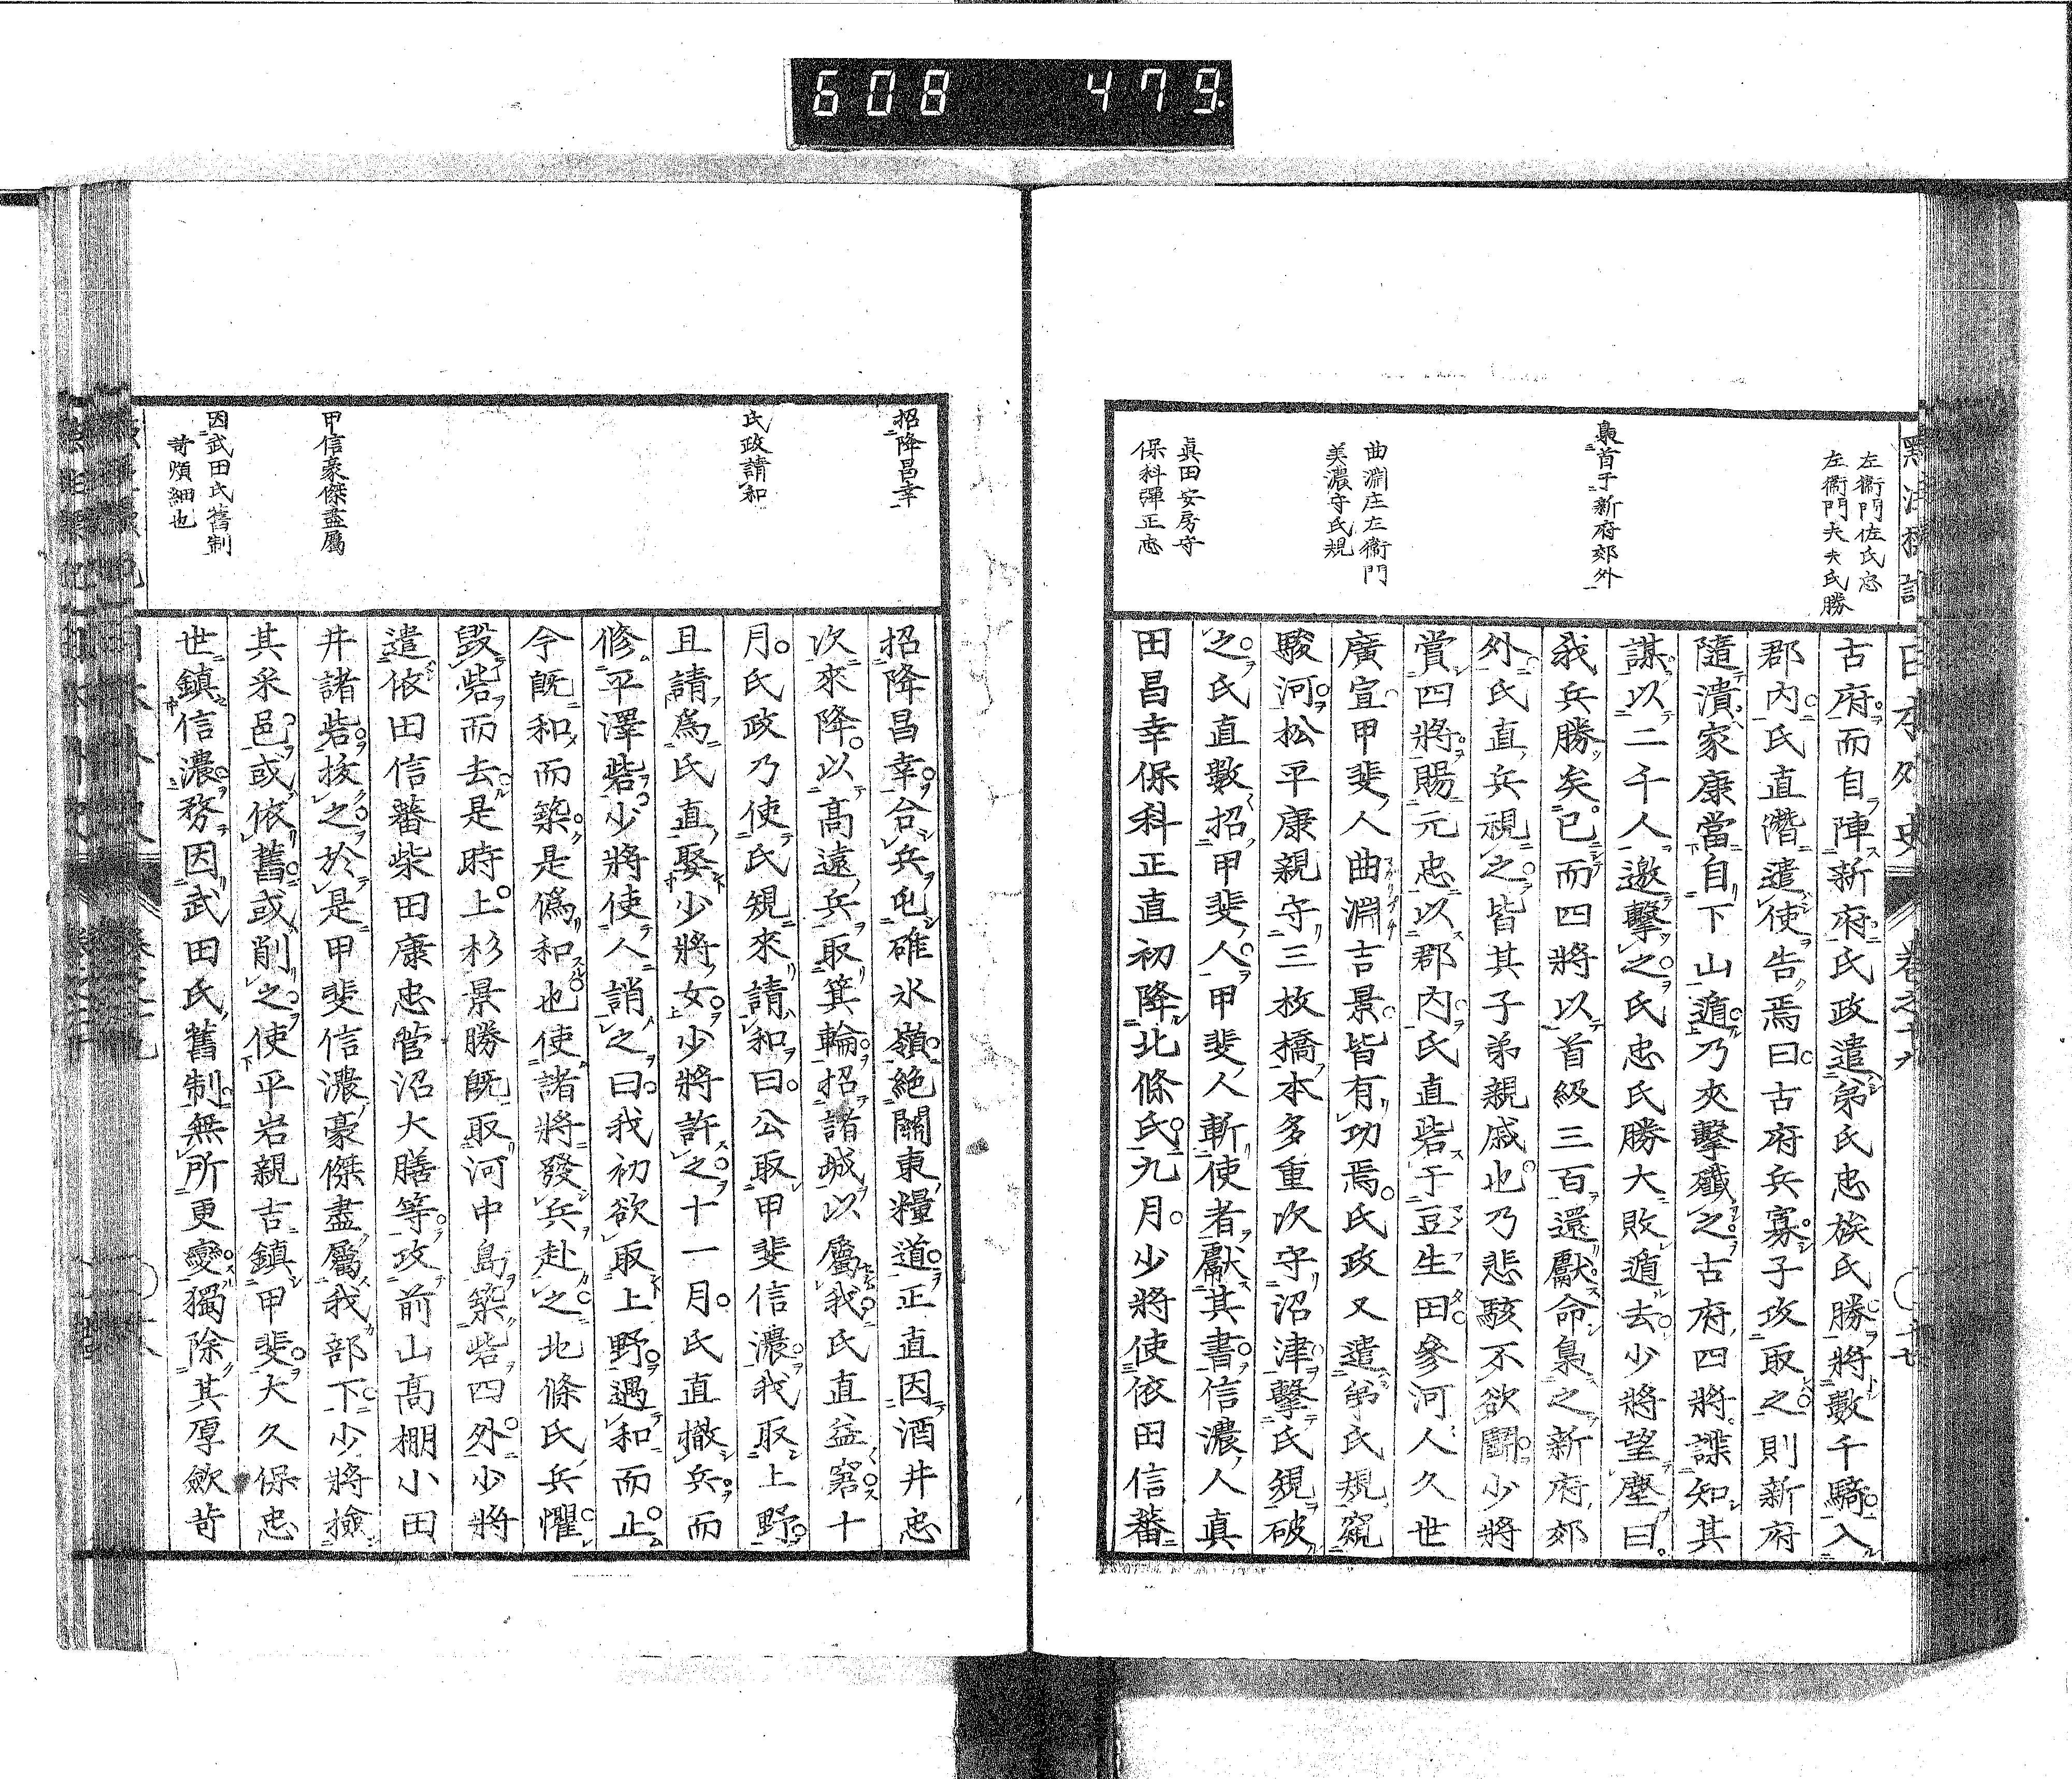 608 479
左衞門佐氏忠
左衞門大夫氏勝
梟首于新府郊外
曲淵庄左衞門
美濃守氏規
眞田安房守
保科彈正忠
日本外史 卷之十九
古府而自陣新府氏政遣弟氏忠族氏勝將數千騎入
郡內氏直潛遣使告焉曰古府兵寡子攻取之則新府
隨潰家康當自下山遁乃夾擊殱之古府四將諜知其
謀以二千人邀擊之氏忠氏勝大敗遁去少將望塵曰
我兵勝矣已而四將以首級三百還獻命梟之新府郊
外氏直兵視之皆其子弟親戚也乃悲駭不欲鬪少將
賞四將賜元忠以郡內氏直砦于豆生田參河人久世
廣宣甲斐人曲淵吉景皆有功焉氏政又遣弟氏規窺
駿河松平康親守三枚橋本多重次守沼津擊氏規破
之氏直數招甲斐人甲斐人斬使者獻其書信濃人眞
田昌幸保科正直初降北條氏九月少將使依田信蕃
招降昌幸
氏政請和
甲信豪傑盡屬
因武田氏舊制
苛煩細也
招降昌幸合兵屯碓氷嶺絕關東糧道正直因酒井忠
次來降以高遠兵取箕輪招諸城以屬我氏直益窘十
月氏政乃使氏規來請和曰公取甲斐信濃我取上野
且請爲氏直娶少將女少將許之十一月氏直撤兵而
修平澤砦少將使人誚之曰我初欲取上野遇和而止
今旣和而築是僞和也使諸將發兵赴之北條氏兵懼
毀砦而去是時上杉景勝旣取河中島築砦四外少將
遣依田信蕃柴田康忠菅沼大膳等攻前山高棚小田
井諸砦拔之於是甲斐信濃豪傑盡屬我部下少將撿
其采邑或依舊或削之使平岩親吉鎭甲斐大久保忠
世鎭信濃務因武田氏舊制無所更變獨除其厚歛苛